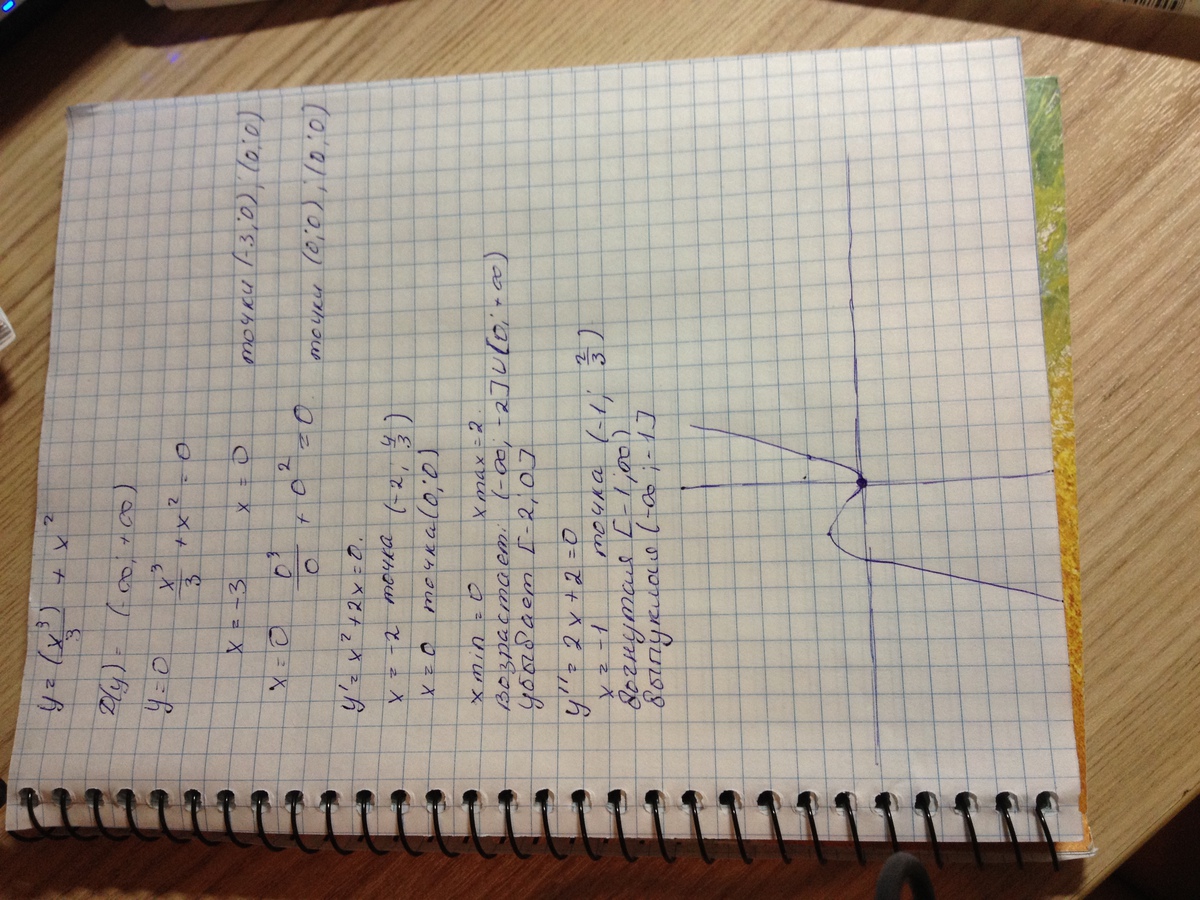 y = (x³)/3 + x²
D(y) = (-∞; +∞)
y = 0 x³/3 + x² = 0
x = -3 x = 0 точки (-3; 0); (0; 0)
x = 0 0³/0 + 0² = 0 точки (0; 0); (0; 0)
y' = x² + 2x = 0.
x = -2 точка (-2, 4/3)
x = 0 точка (0; 0)
x min = 0 x max = 2.
возрастает: (-∞; -2] ∪ [0; +∞)
убывает [-2; 0]
y'' = 2x + 2 = 0
x = -1 точка (-1; 2/3)
вогнутая [-1; ∞)
выпуклая (-∞; -1]